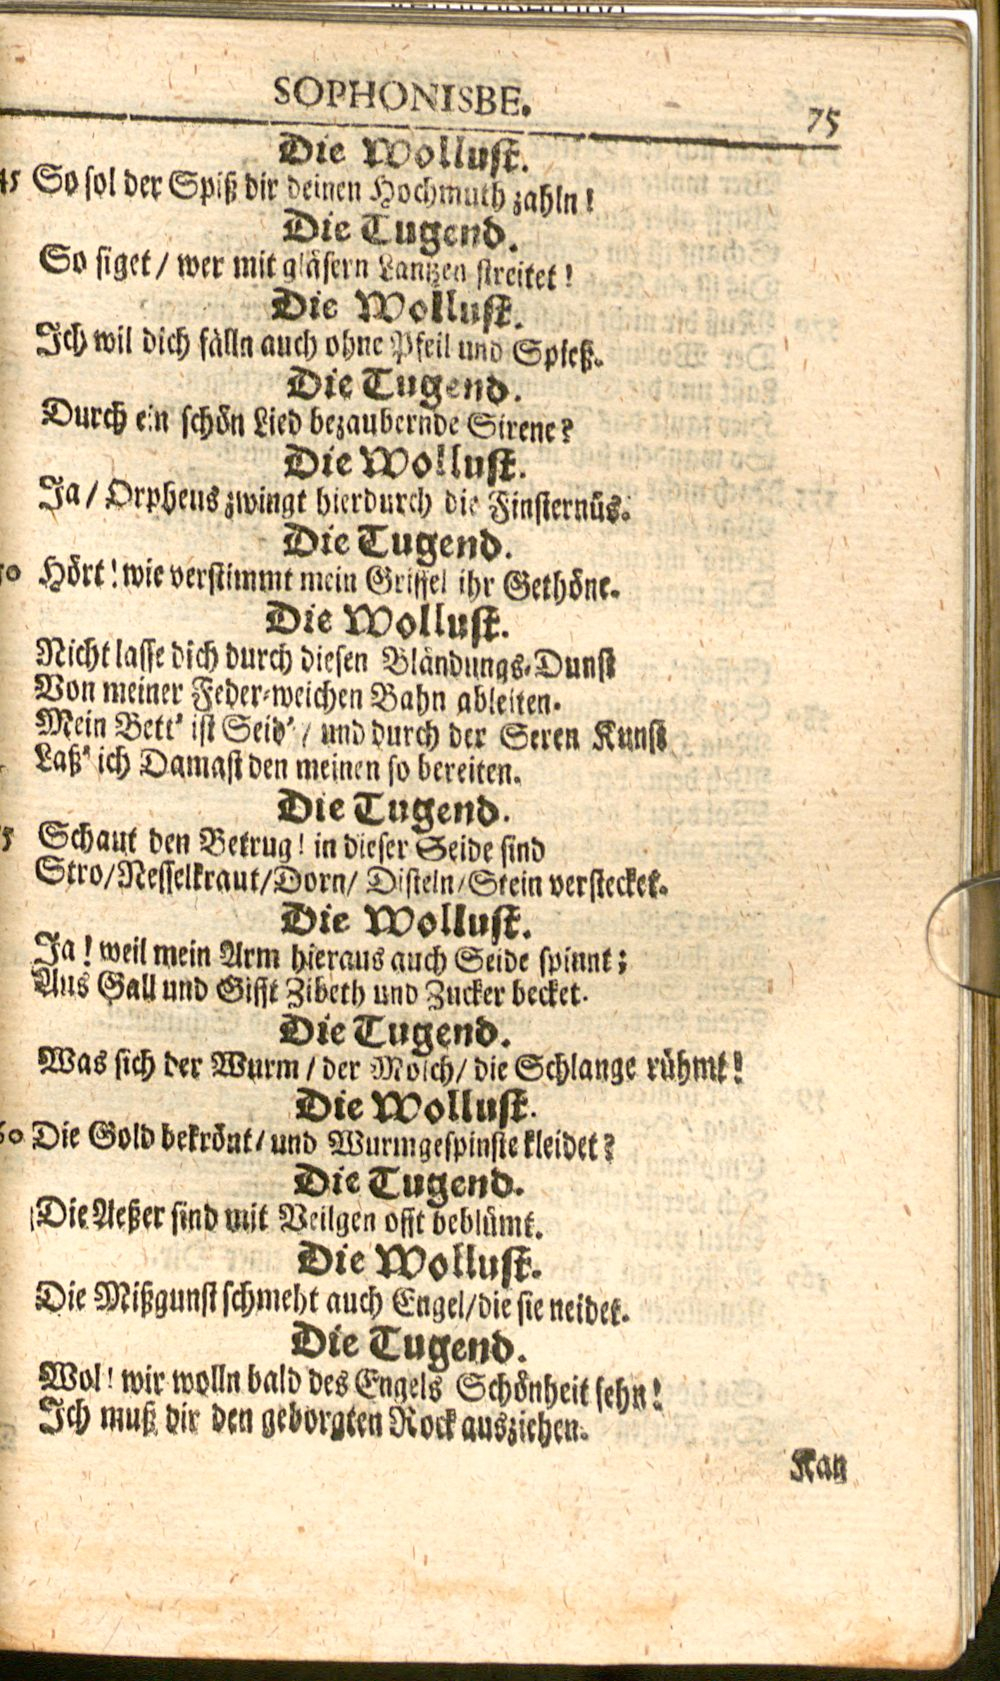 SOPHONISBE.
75
Die Wollust.
45 So sol der Spiß dir deinen Hochmuth zahln!
Die Tugend.
So siget / wer mit gläsern Lantzen streitet!
Die Wollust.
Ich wil dich fälln auch ohne Pfeil und Spieß.
Die Tugend.
Durch ein schön Lied bezaubernde Sirene?
Die Wollust.
Ja / Orpheus zwingt hierdurch die Finsternüs.
Die Tugend.
Hört! wie verstimmt mein Griffel ihr Gethöne.
Die Wollust.
Nicht lasse dich durch diesen Bländungs-Dunst
Von meiner Feder-weichen Bahn ableiten.
Mein Bett' ist Seid' / und durch der Seren Kunst
Laß' ich Damast den meinen so bereiten.
Die Tugend.
5 Schaut den Betrug! in dieser Seide sind
Stro/Nesselkraut/Dorn/ Disteln/Stein verstecket.
Die Wollust.
Ja! weil mein Arm hieraus auch Seide spinnt;
Aus Gall und Gifft Zibeth und Zucker becket.
Die Tugend.
Was sich der Wurm / der Molch/ die Schlange rühmt!
Die Wollust.
60 Die Gold bekrönt/ und Wurmgespinste kleidet?
Die Tugend.
Die Aeßer sind mit Veilgen offt beblümt.
Die Wollust.
Die Mißgunst schmeht auch Engel/die sie neidet.
Die Tugend.
Wol! wir wolln bald des Engels Schönheit sehn!
Ich muß dir den geborgten Rock ausziehen.
Kan